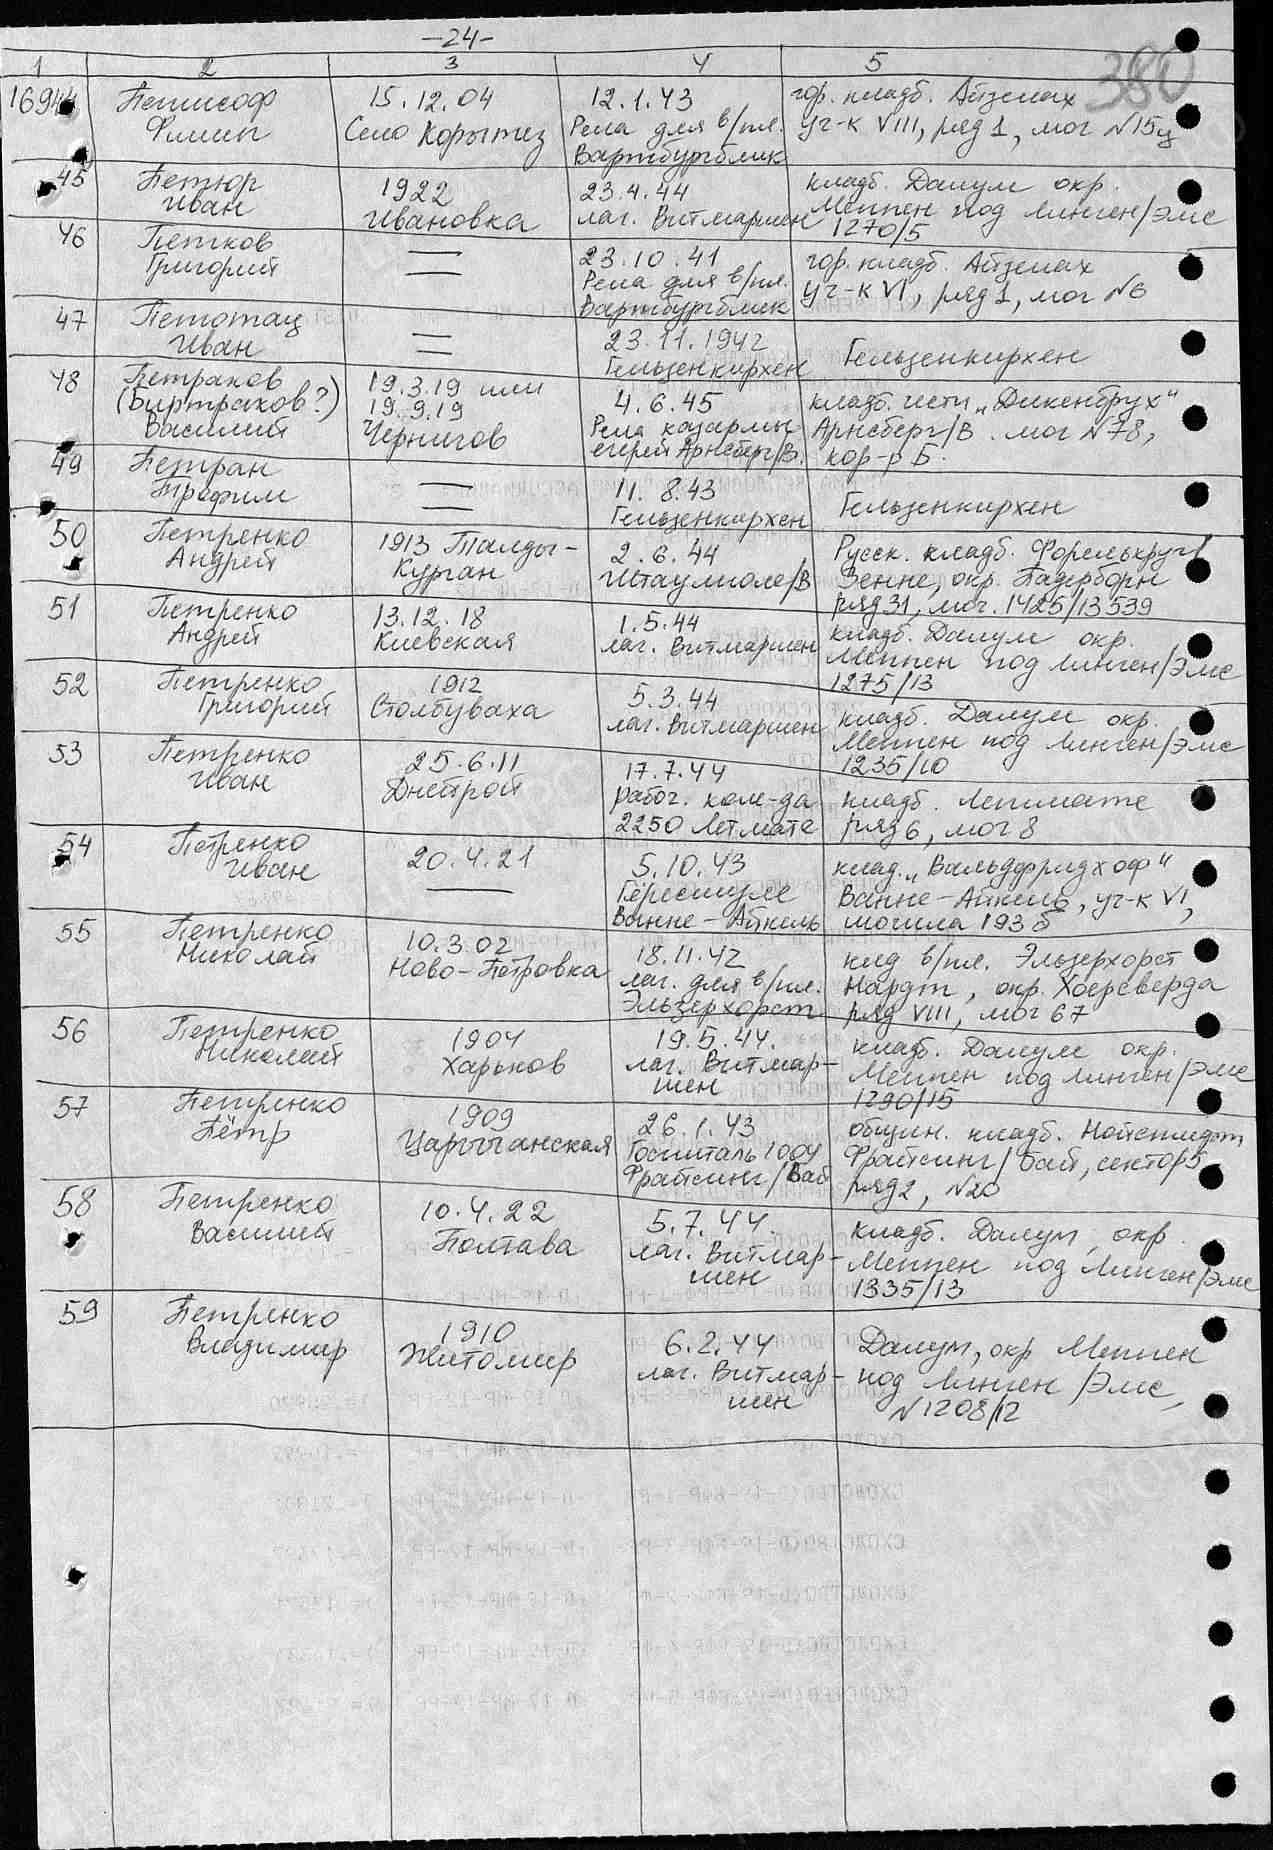 -24-
380
1 2 3 4 5
16944 Петисоф 15.12.04 12.1.43 гор. кладб. Айзенах
Филип Село Корытез Рева для в/пл. уч-к VIII, ряд 1, мог N15ц
Вартбургблик
45 Петюр 1922 23.4.44 кладб. Далум окр.
Иван Ивановка лаг. Витмаршен Меппен под Линген/Эмс
1270/5
46 Петков — 23.10.41 гор. кладб. Айзенах
Григорий — Рева для в/пл. уч-к VI, ряд 1, мог N6
Вартбургблик
47 Петотац — 23.11.1942 Гельзенкирхен
Иван — Гельзенкирхен
48 Петраков 19.3.19 или 4.6.45 кладб. чести „Дикенбрух"
(Биртрахов?) 19.9.19 Рева казармы Арнсберг/В. мог N78,
Василий Чернигов егерей Арнсберг/В. кор-р Б.
49 Петран — 11.8.43 Гельзенкирхен
Трофим — Гельзенкирхен
50 Петренко 1913 Талды- 2.6.44 Русск. кладб. Форелькруг
Андрей Курган Штаумюле/В Зенне, окр. Падерборн
ряд 31, мог. 1425/13539
51 Петренко 13.12.18 1.5.44 кладб. Далум окр.
Андрей Киевская лаг. Витмаршен Меппен под Линген/Эмс
1275/13
52 Петренко 1912 5.3.44 кладб. Далум окр.
Григорий Столбуваха лаг. Витмаршен Меппен под Линген/Эмс
1235/10
53 Петренко 25.6.11 17.7.44 кладб. Летмате
Иван Днестрой рабоч. ком-да ряд 6, мог 8
2250 Летмате
54 Петренко 20.4.21 5.10.43 клад. „Вальдфридхоф"
Иван — Гёресшуле Ванне-Айкель, уч-к VI,
Ванне-Айкель могила 193 б
55 Петренко 10.3.02 18.11.42 клд в/пл. Эльзерхорст
Николай Ново-Петровка лаг. для в/пл. Нардт, окр. Хоерсверда
Эльзерхорст ряд VIII, мог 67
56 Петренко 1904 19.5.44. кладб. Далум окр.
Николай Харьков лаг. Витмар- Меппен под Линген/Эмс
шен 1290/15
57 Петренко 1909 26.1.43 общин. кладб. Нойстидт
Пётр Царычанская Госпиталь 1004 Фрайсинг/Бай, сектор 5
Фрайсинг/Бай ряд 2, N20
58 Петренко 10.4.22 5.7.44. кладб. Далум, окр.
Василий Полтава лаг. Витмар- Меппен под Линген/Эмс
шен 1335/13
59 Петренко 1910 6.2.44 Далум, окр Меппен
Владимир Житомир лаг. Витмар- под Линген/Эмс,
шен N1208/12